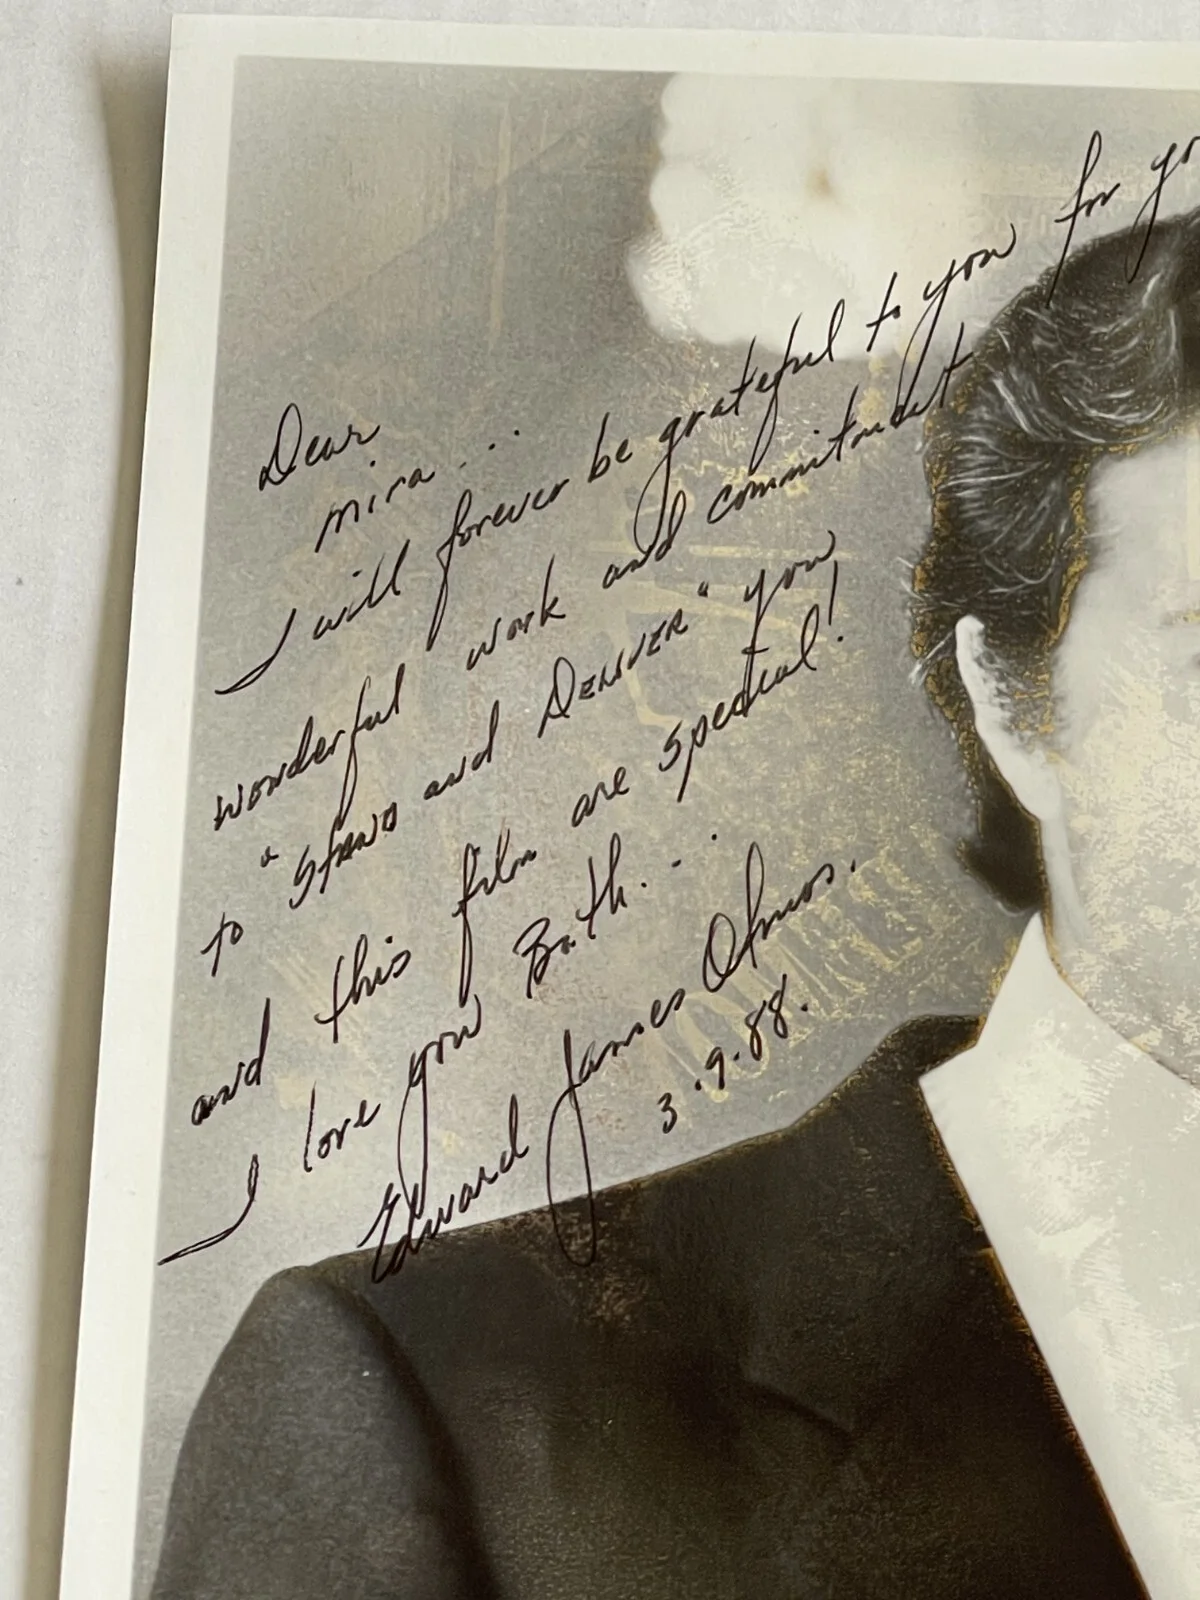 Dear
mira...
I will forever be grateful to you for yo
wonderful work and commitment
to "STAND and DELIVER" you
and this film are special!
I love you Both...
Edward James Olmos.
3.9.88.